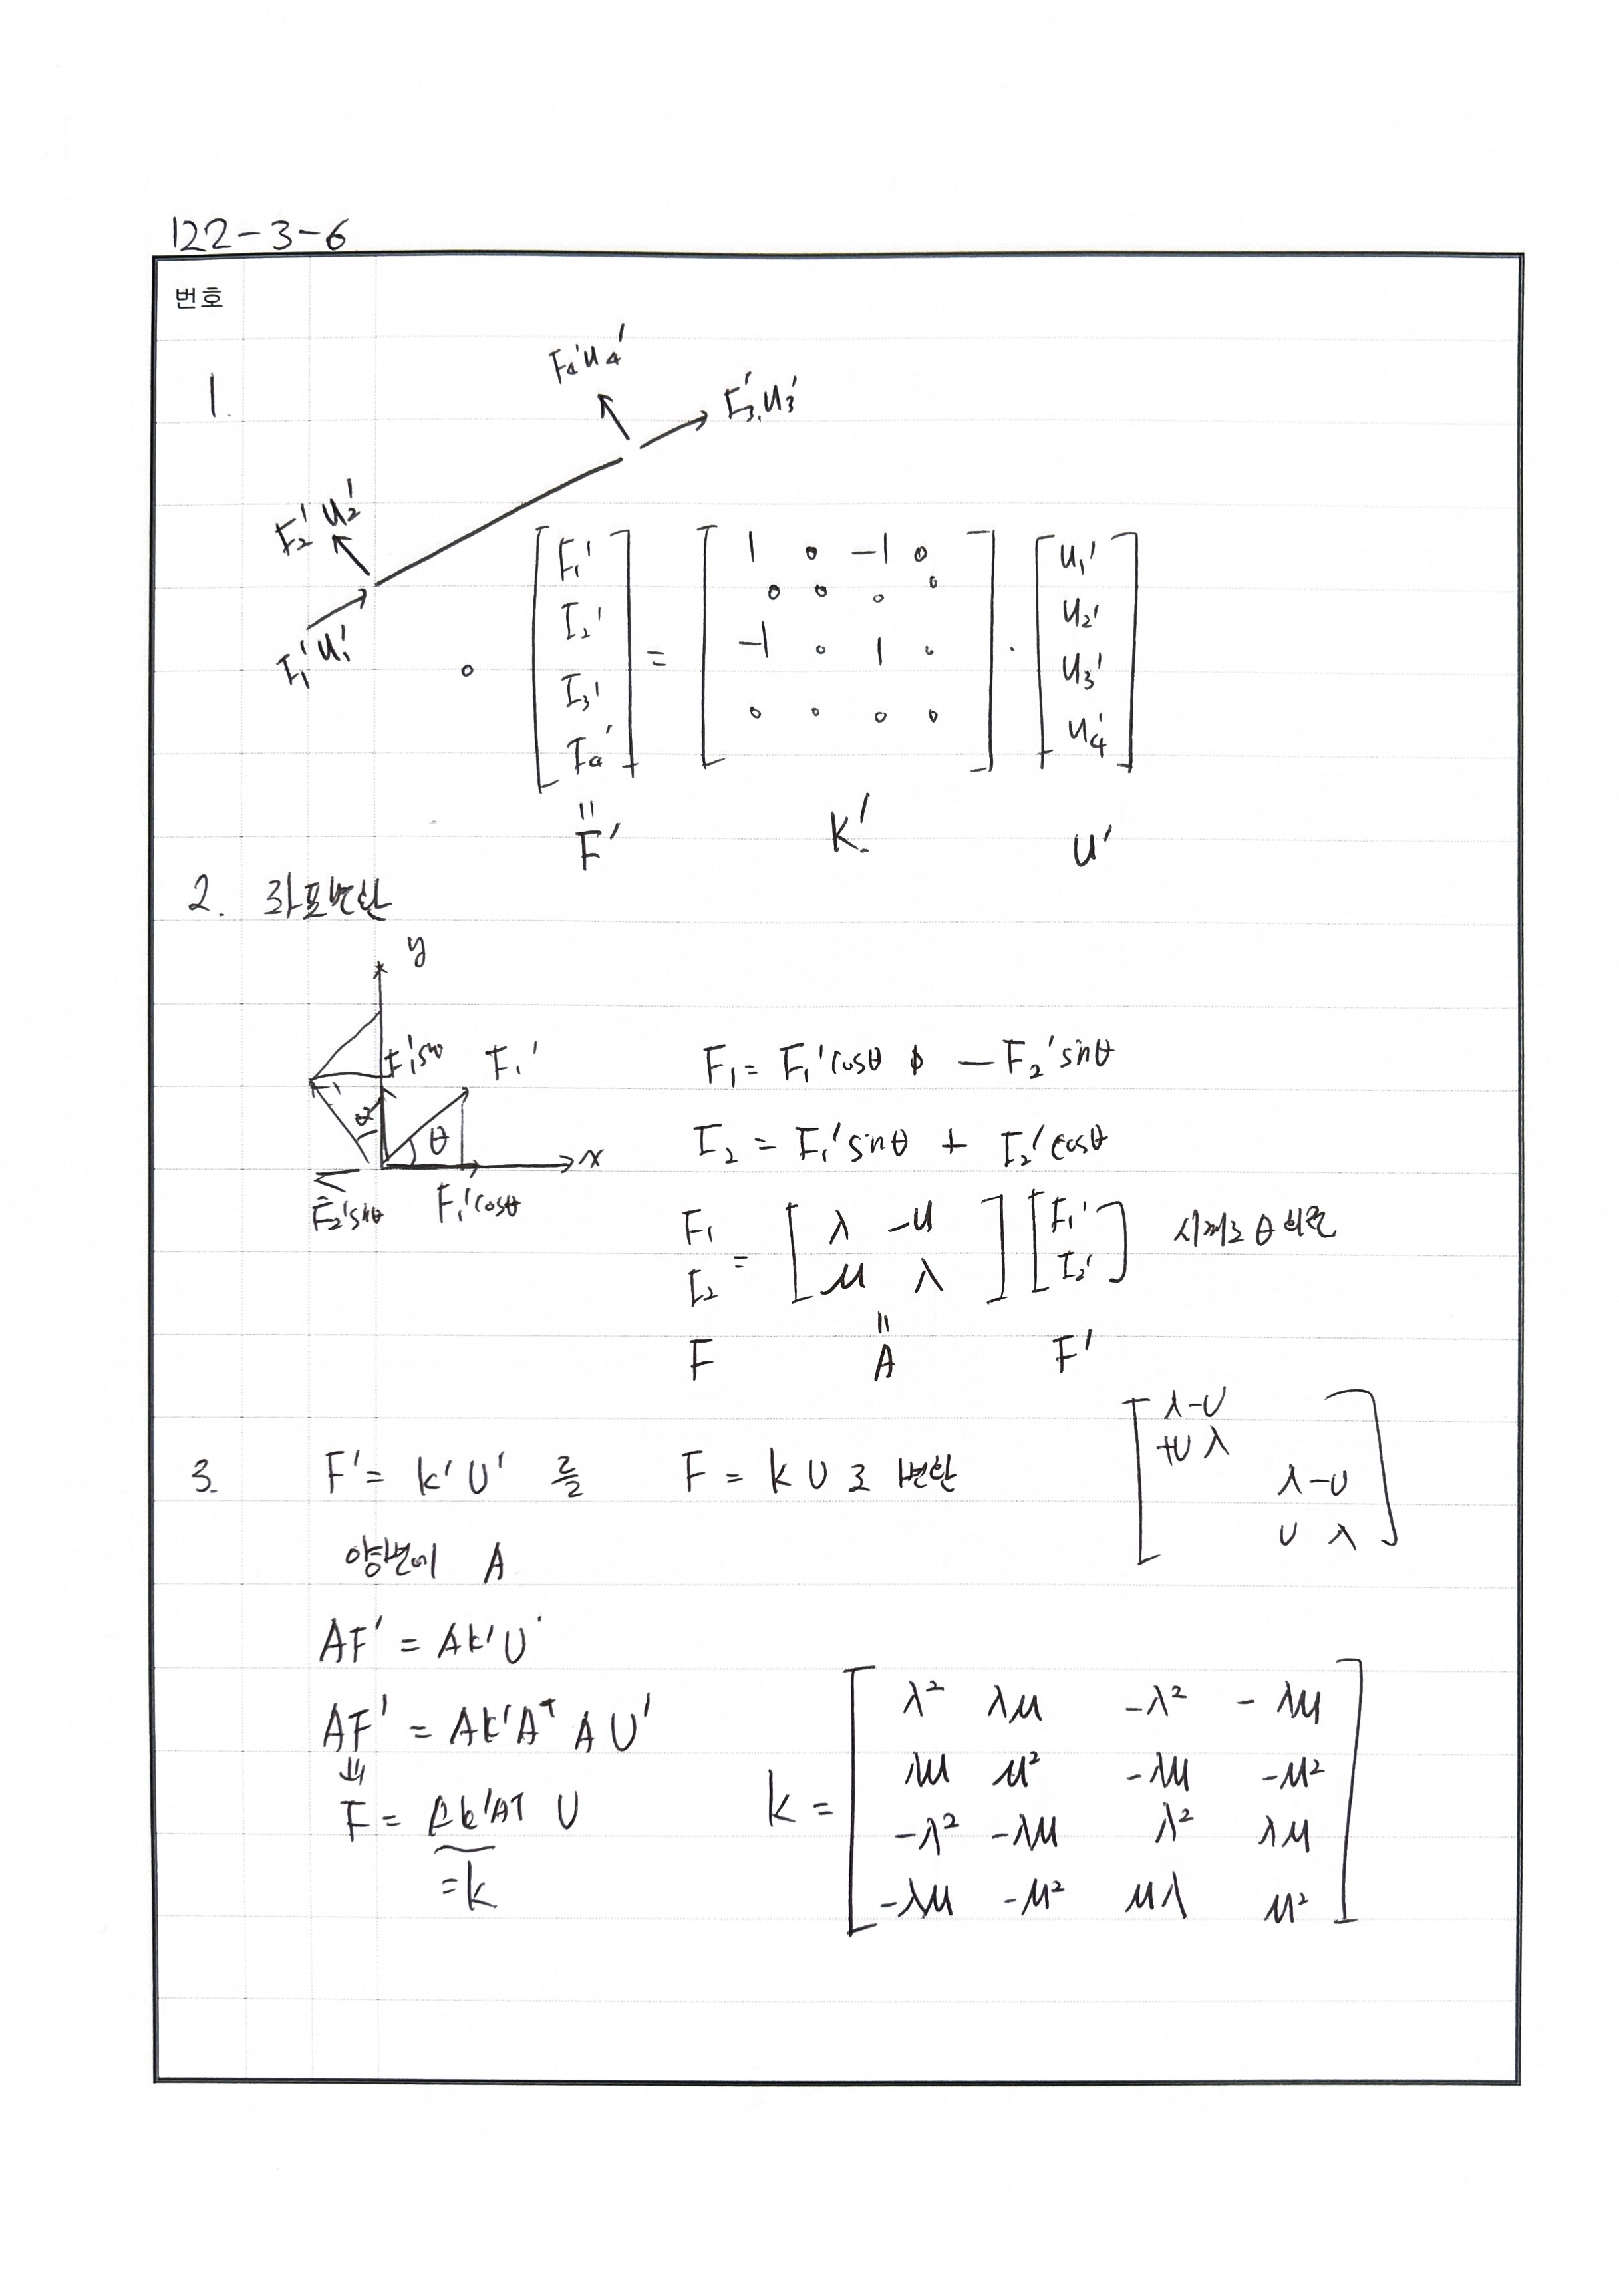 122-3-6
번호
1.
F4' u4'
F3', u3'
F2' u2'
F1' u1'
[F1' F2' F3' F4'] = [1 0 -1 0
0 0 0 0
-1 0 1 0
0 0 0 0] · [u1' u2' u3' u4']
= F' K' u'
2. 좌표변환
y
F1'sinθ F1'
θ θ
x
F2'sinθ F1'cosθ
F1 = F1'cosθ - F2'sinθ
F2 = F1'sinθ + F2'cosθ
F1 F2 = [λ -μ
μ λ] [F1' F2']
F = A F'
[λ -μ
+μ λ
λ -μ
μ λ]
3. F' = k'U' 를 F = kU로 변환
양변에 A
AF' = Ak'U'
AF' = Ak'A^T A U'
⇓
F = Ak'A^T U
= k
k = [λ² λμ -λ² -λμ
λμ μ² -λμ -μ²
-λ² -λμ λ² λμ
-λμ -μ² μλ μ²]